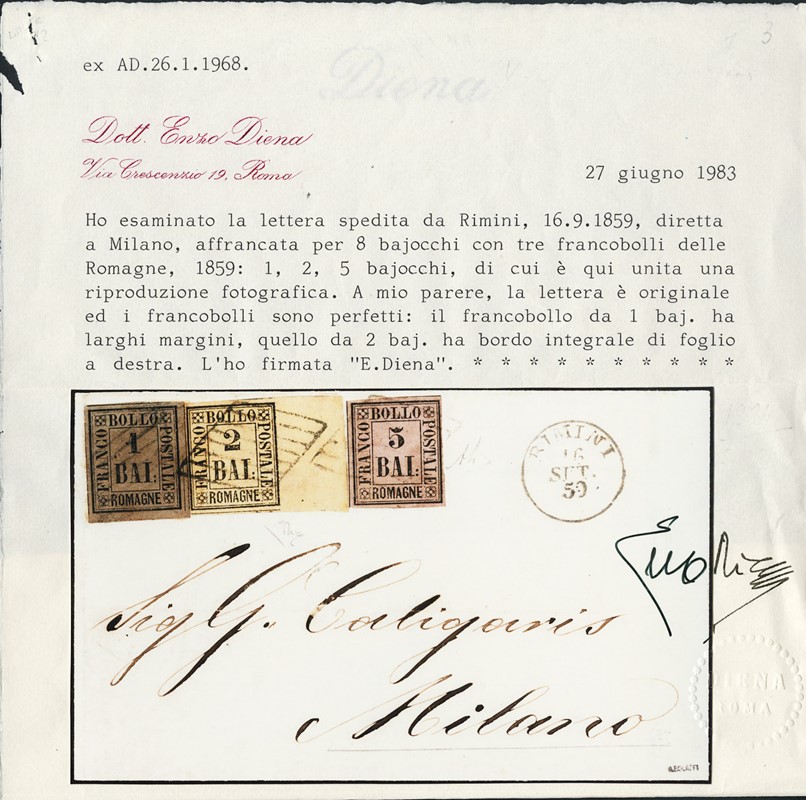 ex AD.26.1.1968.
Diena
3
Dott. Enzo Diena
Via Crescenzio 19, Roma
27 giugno 1983
Ho esaminato la lettera spedita da Rimini, 16.9.1859, diretta
a Milano, affrancata per 8 bajocchi con tre francobolli delle
Romagne, 1859: 1, 2, 5 bajocchi, di cui è qui unita una
riproduzione fotografica. A mio parere, la lettera è originale
ed i francobolli sono perfetti: il francobollo da 1 baj. ha
larghi margini, quello da 2 baj. ha bordo integrale di foglio
a destra. L'ho firmata "E.Diena". * * * * * * * * * *
FRANCO BOLLO POSTALE ROMAGNE
1
BAI:
FRANCO BOLLO POSTALE ROMAGNE
2
BAI:
FRANCO BOLLO POSTALE ROMAGNE
5
BAI:
RIMINI
16
SET.
59
Sig G. Caligaris
Milano
DIENA
ROMA